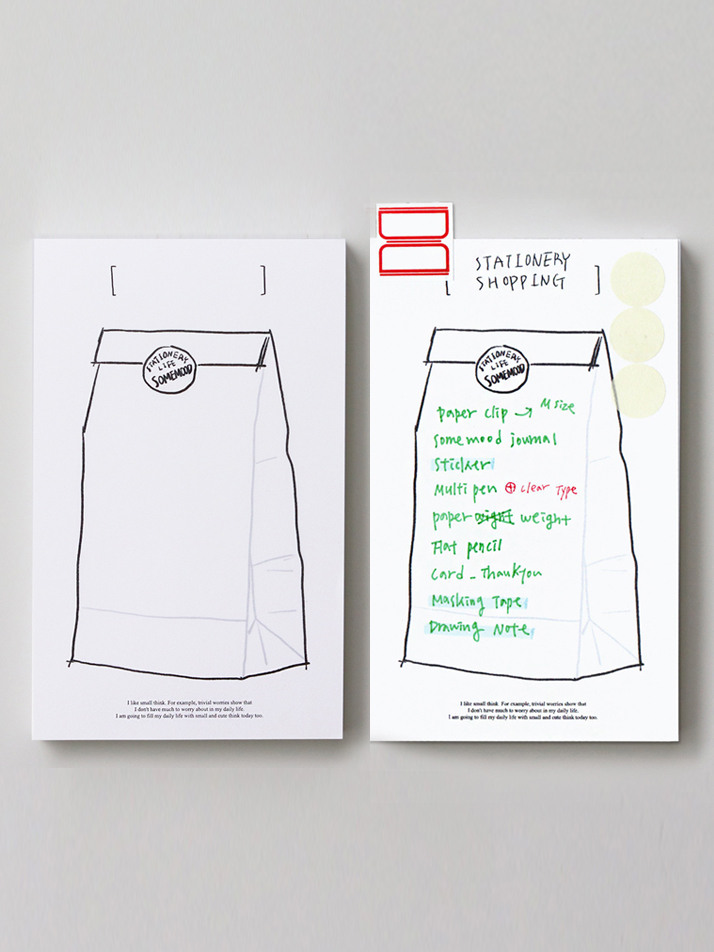 [ ]
STATIONERY
LIFE
SOMEMOOD
I like small think. For example, trivial worries show that
I don't have much to worry about in my daily life.
I am going to fill my daily life with small and cute think today too.
[ STATIONERY
SHOPPING ]
STATIONERY
LIFE
SOMEMOOD
paper clip → M size
somemood journal
Sticker
Multi pen ⊕ clear Type
paper weight
Flat pencil
Card - Thankyou
Masking Tape
Drawing Note
I like small think. For example, trivial worries show that
I don't have much to worry about in my daily life.
I am going to fill my daily life with small and cute think today too.